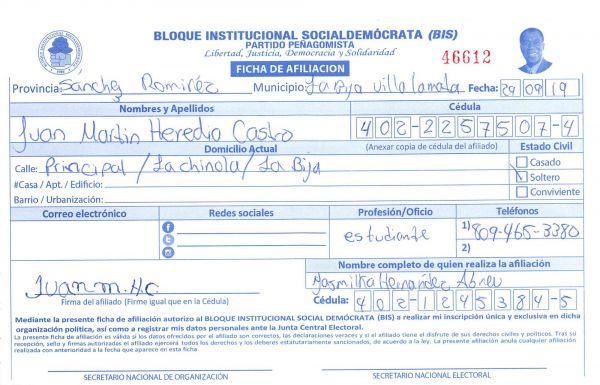 BLOQUE INSTITUCIONAL SOCIALDEMÓCRATA (BIS)
PARTIDO PEÑAGOMISTA
Libertad, Justicia, Democracia y Solidaridad
46612
FICHA DE AFILIACION
Provincia: Sánchez Ramiréz Municipio: La Bija Villa la mata Fecha: 29 09 19
Nombres y Apellidos Cédula
Juan Martin Heredia Castro 402-2257507-4
Domicilio Actual (Anexar copia de cédula del afiliado) Estado Civil
Calle: Principal / La chinola / La Bija Casado
#Casa / Apt. / Edificio: Soltero
Barrio / Urbanización: Conviviente
Correo electrónico Redes sociales Profesión/Oficio Teléfonos
estudiante 1) 809-465-3380
2)
Nombre completo de quien realiza la afiliación
Juan m. H.C Yasmilka Hernandez Abreu
Firma del afiliado (Firme igual que en la Cédula) Cédula: 402-1245384-5
Mediante la presente ficha de afiliación autorizo al BLOQUE INSTITUCIONAL SOCIAL DEMÓCRATA (BIS) a realizar mi inscripción única y exclusiva en dicha
organización política, así como a registrar mis datos personales ante la Junta Central Electoral.
La presente ficha de afiliación es válida si los datos ofrecidos por el afiliado son correctos, las declaraciones veraces y si el afiliado tiene el disfrute de sus derechos civiles y políticos. Tras su
recepción, sello y firmas autorizadas el afiliado ejercerá todos los derechos y los deberes estatutariamente sancionados, de acuerdo a la ley. La presente afiliación anula cualquier afiliación
realizada con anterioridad a la fecha que aparece en esta ficha.
SECRETARIO NACIONAL DE ORGANIZACIÓN SECRETARIO NACIONAL ELECTORAL